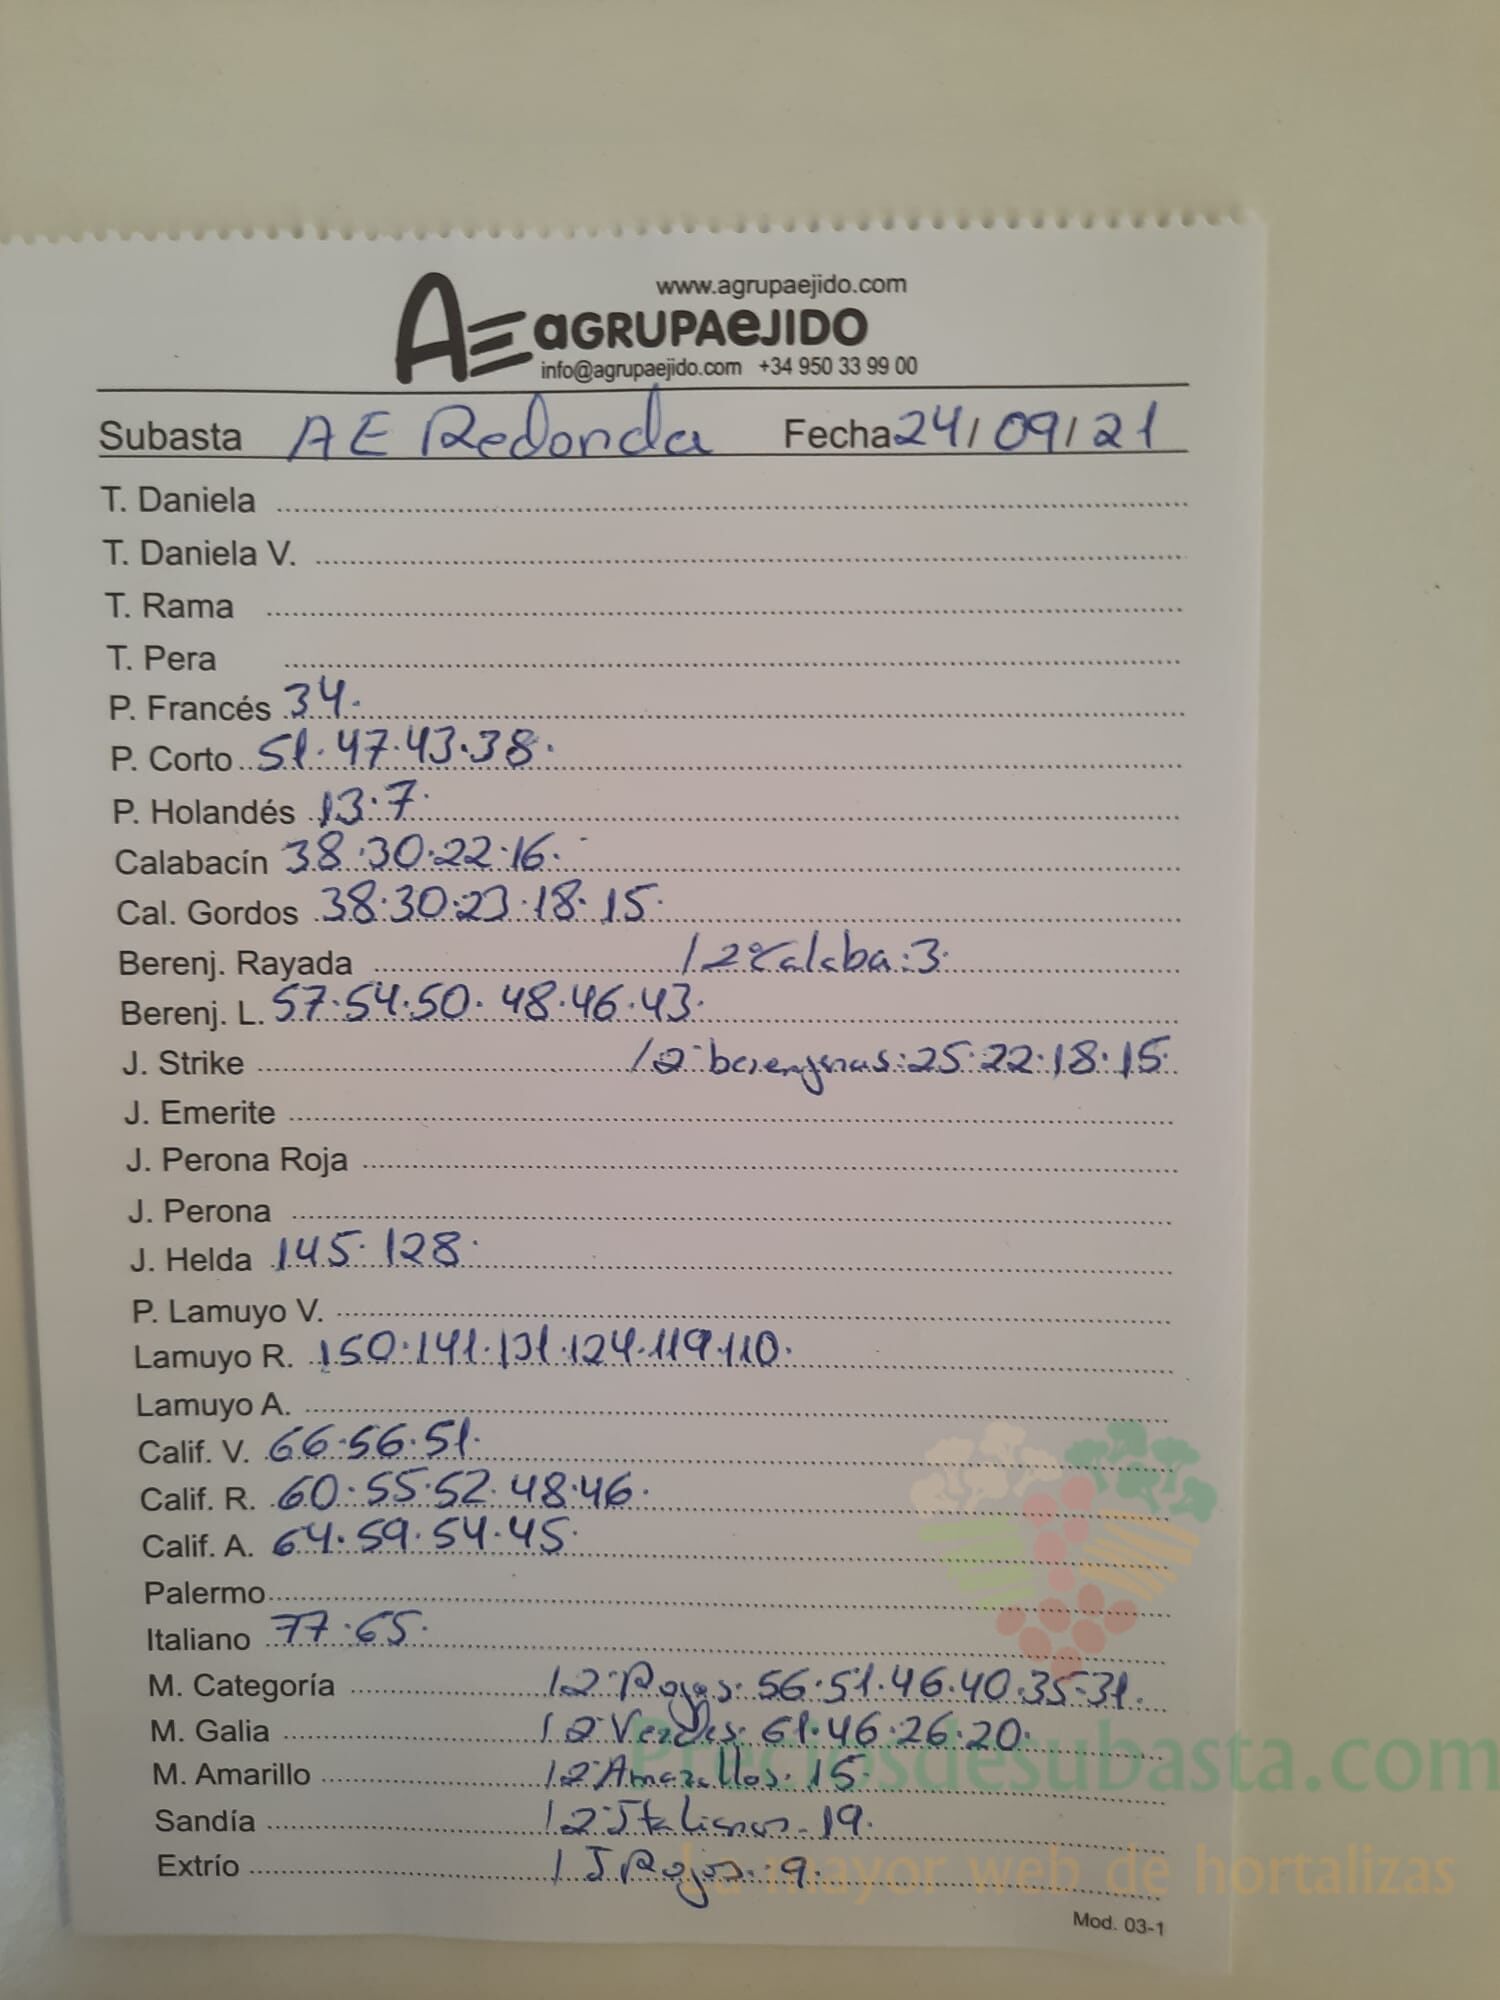 www.agrupaejido.com
AE aGRUPAeJIDO
info@agrupaejido.com +34 950 33 99 00
Subasta AE Redonda Fecha 24/09/21
T. Daniela
T. Daniela V.
T. Rama
T. Pera
P. Francés 34.
P. Corto 51.47.43.38.
P. Holandés 13.7.
Calabacín 38.30.22.16.
Cal. Gordos 38.30.23.18.15.
Berenj. Rayada / 2ª Calaba:3.
Berenj. L. 57.54.50.48.46.43.
J. Strike / 2ª berenjenas:25.22.18.15.
J. Emerite
J. Perona Roja
J. Perona
J. Helda 145.128.
P. Lamuyo V.
Lamuyo R. 150.141.131.124.119.110.
Lamuyo A.
Calif. V. 66.56.51.
Calif. R. 60.55.52.48.46.
Calif. A. 64.59.54.45.
Palermo
Italiano 77.65.
M. Categoría / 2ª Rojos: 56.51.46.40.35.31.
M. Galia / 2ª Verdes: 61.46.26.20.
M. Amarillo / 2ª Amarillos. 15.
Sandía / 2ª Italianos. 19.
Extrío / J. Rojos: 9.
Preciosdesubasta.com
La mayor web de hortalizas
Mod. 03-1